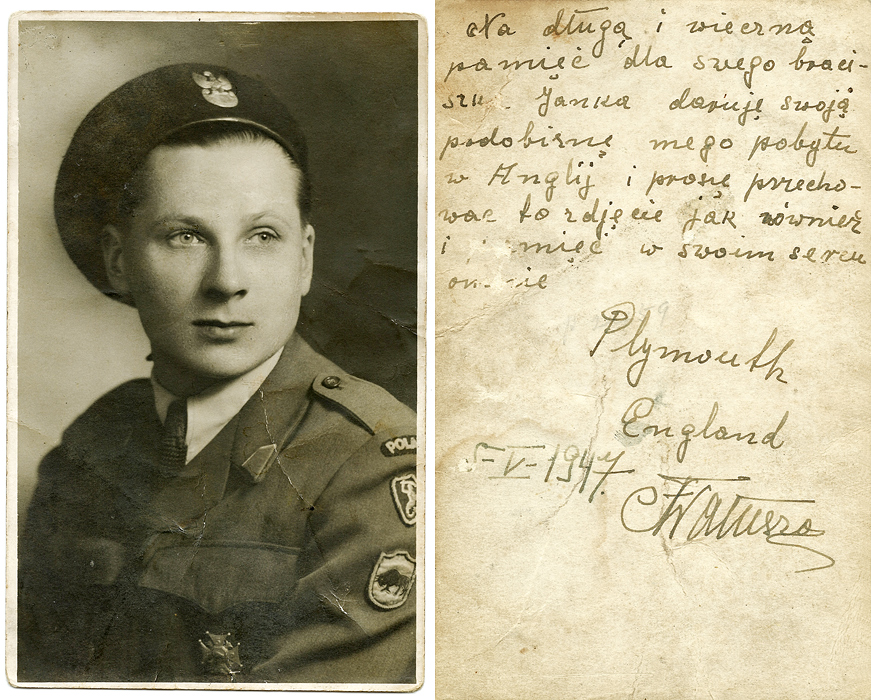 POLA
Na długą i wieczną
pamięć dla swego braci-
szk. Janka daruję swoją
podobiznę mego pobytu
w Anglij i proszę przecho-
wac to zdjęcie jak również
i mięć w swoim sercu
Plymouth
England
5-V-1947